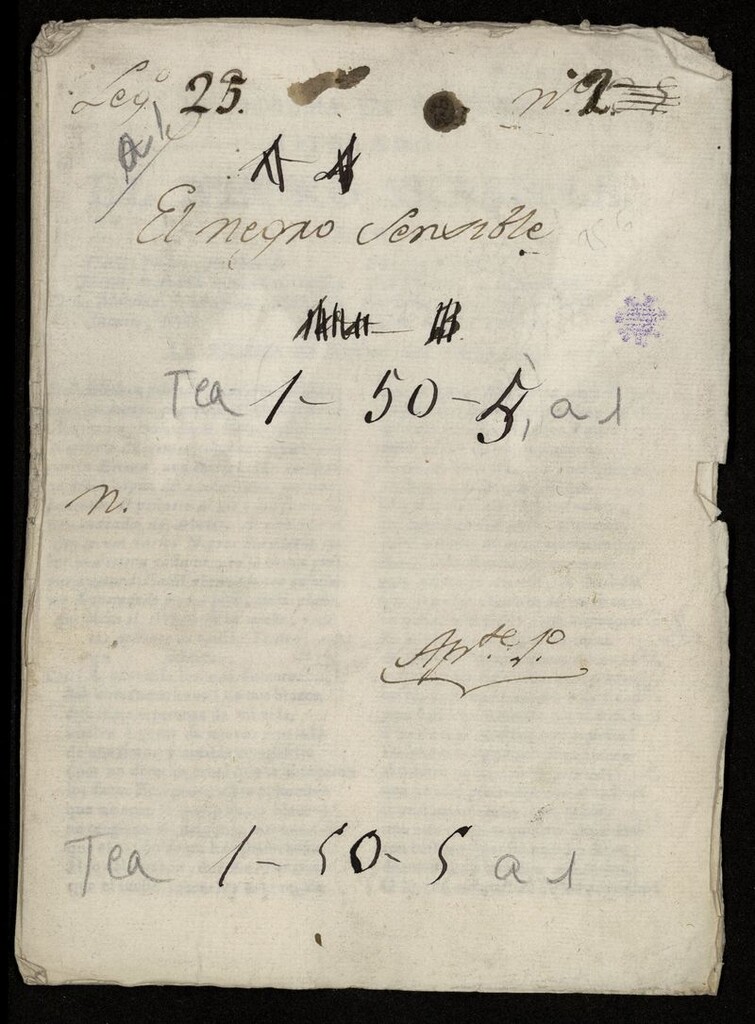 Leg.º 25. n.º 2.
El negro Sensible
Tea 1-50-5, a 1
n.
Apte. 1º
Tea 1-50-5 a 1